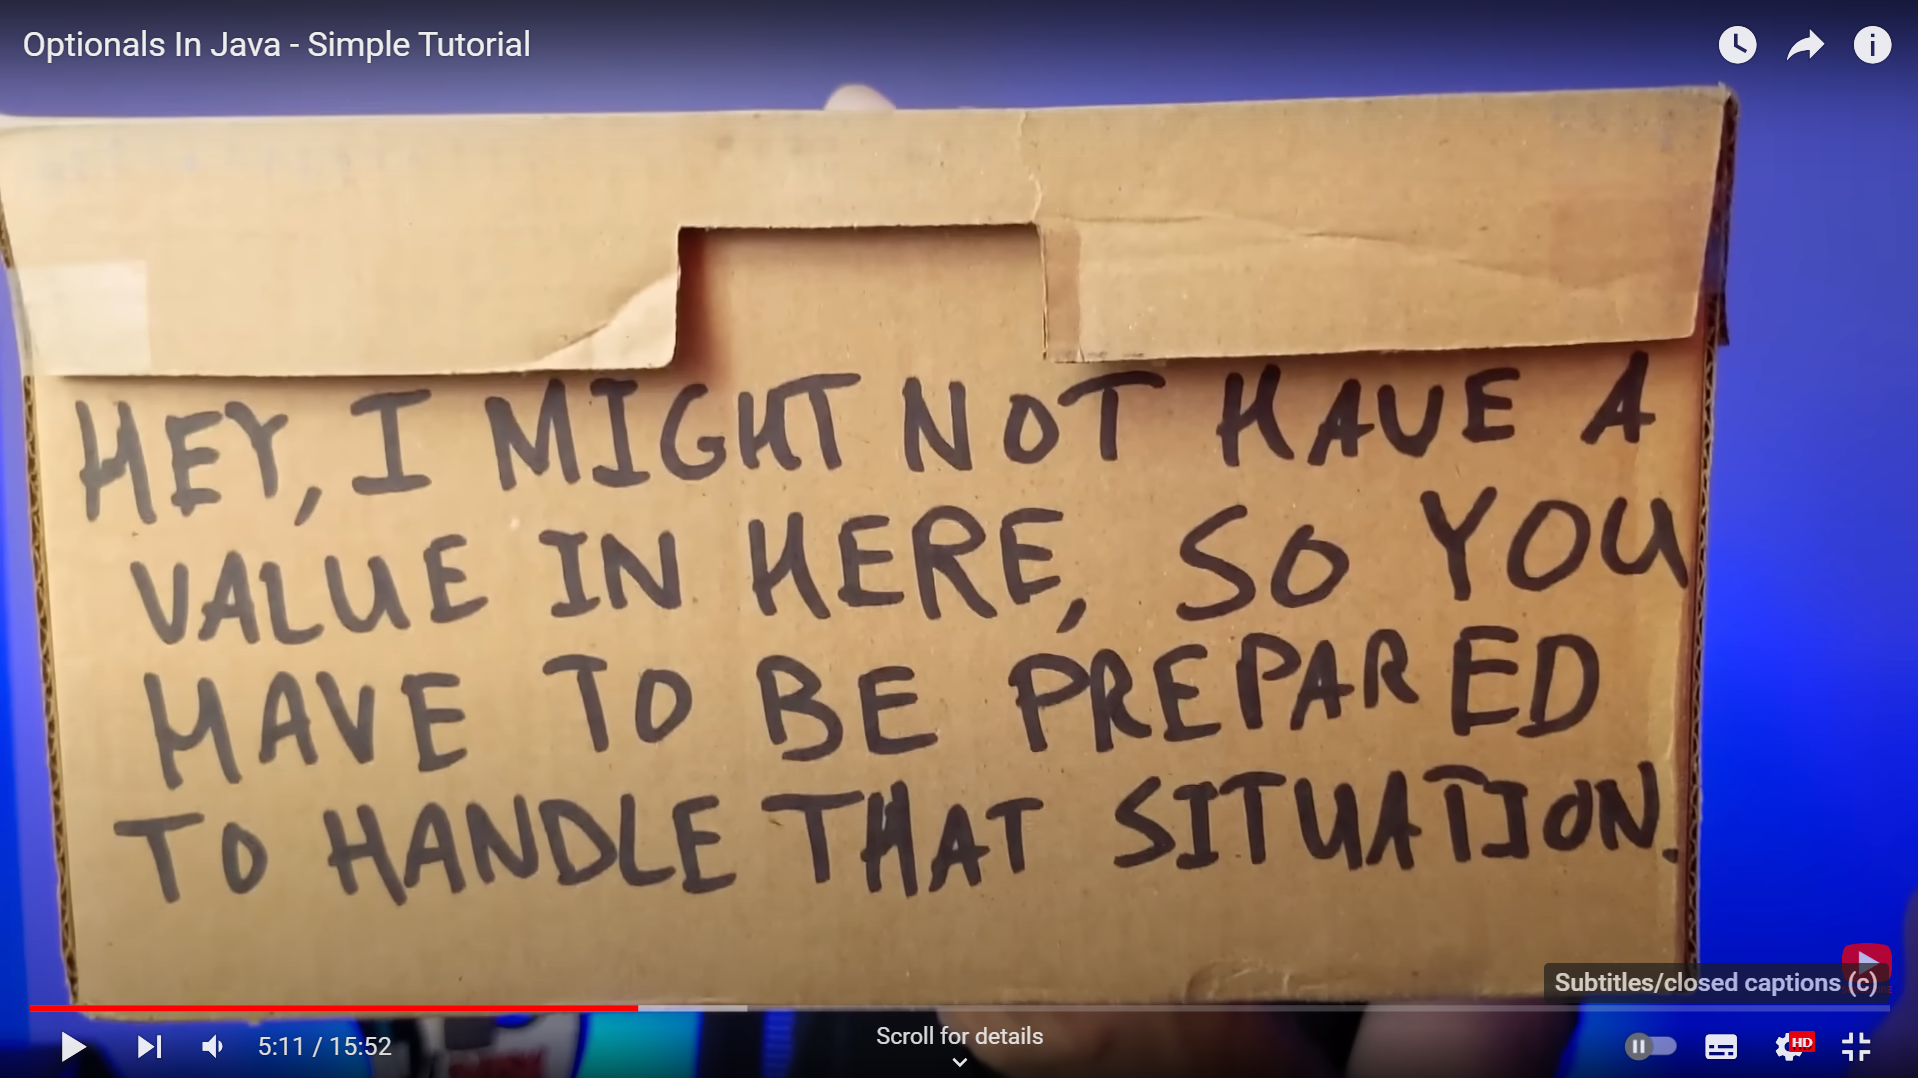 Optionals In Java - Simple Tutorial
HEY, I MIGHT NOT HAVE A
VALUE IN HERE, SO YOU
HAVE TO BE PREPARED
TO HANDLE THAT SITUATION.
Subtitles/closed captions (c)
5:11 / 15:52
Scroll for details
HD